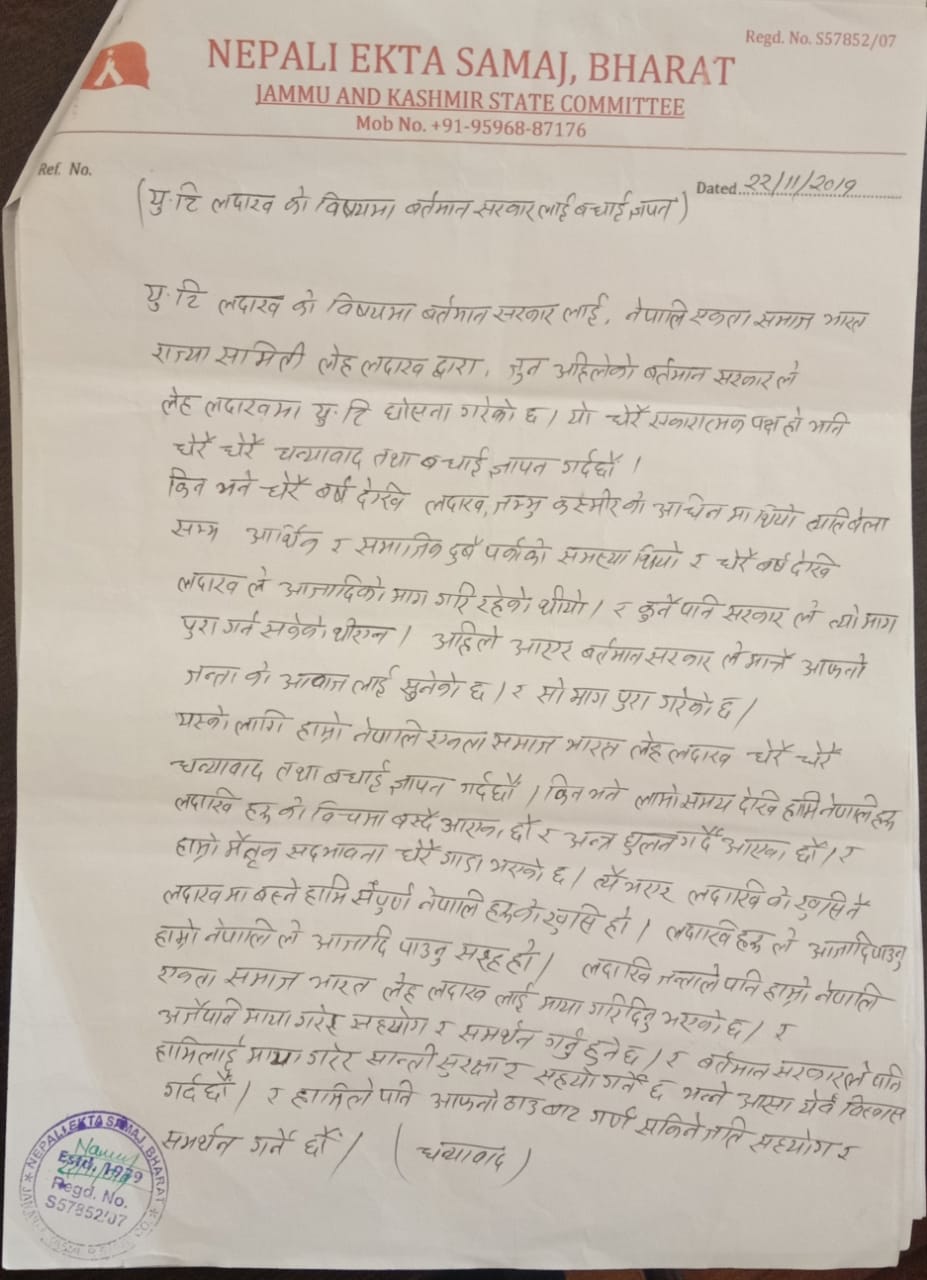 Regd. No. S57852/07
NEPALI EKTA SAMAJ, BHARAT
JAMMU AND KASHMIR STATE COMMITTEE
Mob No. +91-95968-87176
Ref. No.
Dated 22/11/2019
(यु.टि लदाख को विषयमा बर्तमान सरकार लाई बधाई ज्ञापन)
यु.टि लदाख को विषयमा बर्तमान सरकार लाई, नेपालि एकता समाज भारत
राज्या सामिती लेह लदाख द्वारा, जुन अहिलेको बर्तमान सरकार ले
लेह लदाखमा यु.टि घोसना गरेको छ। यो धेरै सकारात्मक पक्ष हो भनि
धेरै धेरै धन्यावाद तथा बधाई ज्ञापन गर्दछौं।
किन भने धेरै बर्ष देखि लदाख, जम्मु कस्मीर को आधिन मा थियो त्यतिबेला
सम्म आर्थिक र समाजिक दुबै पर्काको समस्या थियो र धेरै बर्ष देखि
लदाख ले आजादिको माग गरि रहेको थीयो। र कुनै पनि सरकार ले त्यो माग
पुरा गर्न सकेको थीएन। अहिले आएर बर्तमान सरकार ले मात्रै आफ्नो
जन्ता को आवाज लाई सुनेको छ। र सो माग पुरा गरेको छ।
यस्को लागि हाम्रो नेपालि एकता समाज भारत लेह लदाख धेरै धेरै
धन्यावाद तथा बधाई ज्ञापन गर्दछौं। किन भने लामो समय देखि हामि नेपालि हरु
लदाखि हरु को विचमा बस्दै आएका छौं र अन्त्र घुलन गर्दै आएका छौं। र
हाम्रो मैतृक सदभावना धेरै गाडा भएको छ। त्यै भएर लदाखि को खुसि नै
लदाख मा बस्ने हामि संपुर्ण नेपालि हरुको खुसि हो। लदाखि हरु ले आजादि पाउनु
हाम्रो नेपालि ले आजादि पाउनु सरह हो। लदाखि जन्ताले पनि हाम्रो नेपालि
एकता समाज भारत लेह लदाख लाई माया गरिदिनु भएको छ। र
अजैपनि माया गरेर सहयोग र समर्थन गर्नु हुनेछ। र बर्तमान सरकार ले पनि
हामिलाई माया गरेर सान्ती सुरक्षा र सहयो गर्ने छ भन्ने आसा येवं विस्वास
गर्दछौं। र हामिले पनि आफनो ठाउ बाट गर्ण सकिने जति सहयोग र
समर्थन गर्ने छौं। (धन्यावाद)
NEPALI EKTA SAMAJ, BHARAT
Estd. 1979
Regd. No.
S57852/07